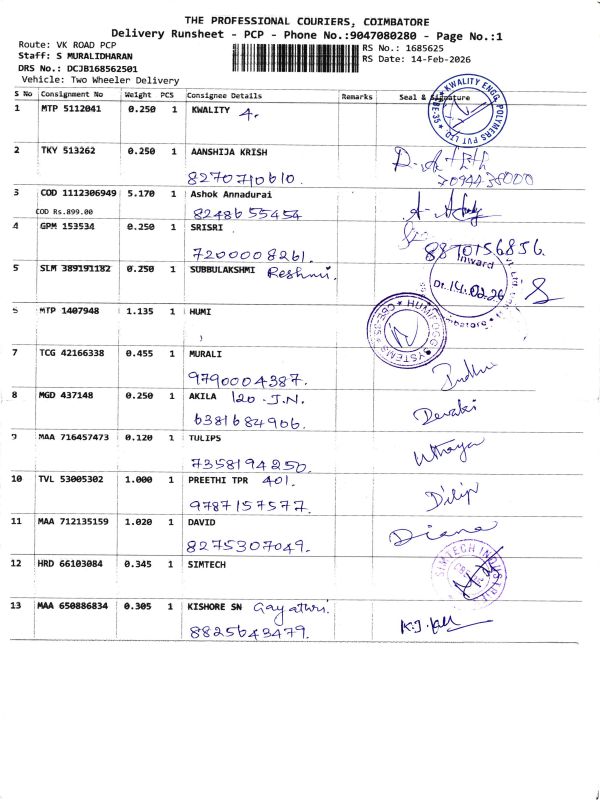 THE PROFESSIONAL COURIERS, COIMBATORE
Delivery Runsheet - PCP - Phone No.:9047080280 - Page No.:1
Route: VK ROAD PCP
RS No.: 1685625
Staff: S MURALIDHARAN
RS Date: 14-Feb-2026
DRS No.: DCJB168562501
Vehicle: Two Wheeler Delivery
S No Consignment No Weight PCS Consignee Details Remarks Seal & Signature
1 MTP 5112041 0.250 1 KWALITY 4.
KWALITY ENGG. POLYMERS PVT LTD
2 TKY 513262 0.250 1 AANSHIJA KRISH
8270710610. 7094438000
3 COD 1112306949 5.170 1 Ashok Annadurai
COD Rs.899.00 8248655454
4 GPM 153534 0.250 1 SRISRI
7200008261. 8870156856.
5 SLM 389191182 0.250 1 SUBBULAKSHMI Reshmi.
Inward
Dt. 14.02.26
6 MTP 1407948 1.135 1 HUMI
SYSTEMS
7 TCG 42166338 0.455 1 MURALI
9790004387.
8 MGD 437148 0.250 1 AKILA 120 J.N. Devaki
6381684906.
9 MAA 716457473 0.120 1 TULIPS Uthaya
7358194250.
10 TVL 53005302 1.000 1 PREETHI TPR 401. Dilip
9787157577.
11 MAA 712135159 1.020 1 DAVID Diana
8275307049.
12 HRD 66103084 0.345 1 SIMTECH
SIMTECH INDUSTRI
13 MAA 650886834 0.305 1 KISHORE SN Gayathri.
8825643479.